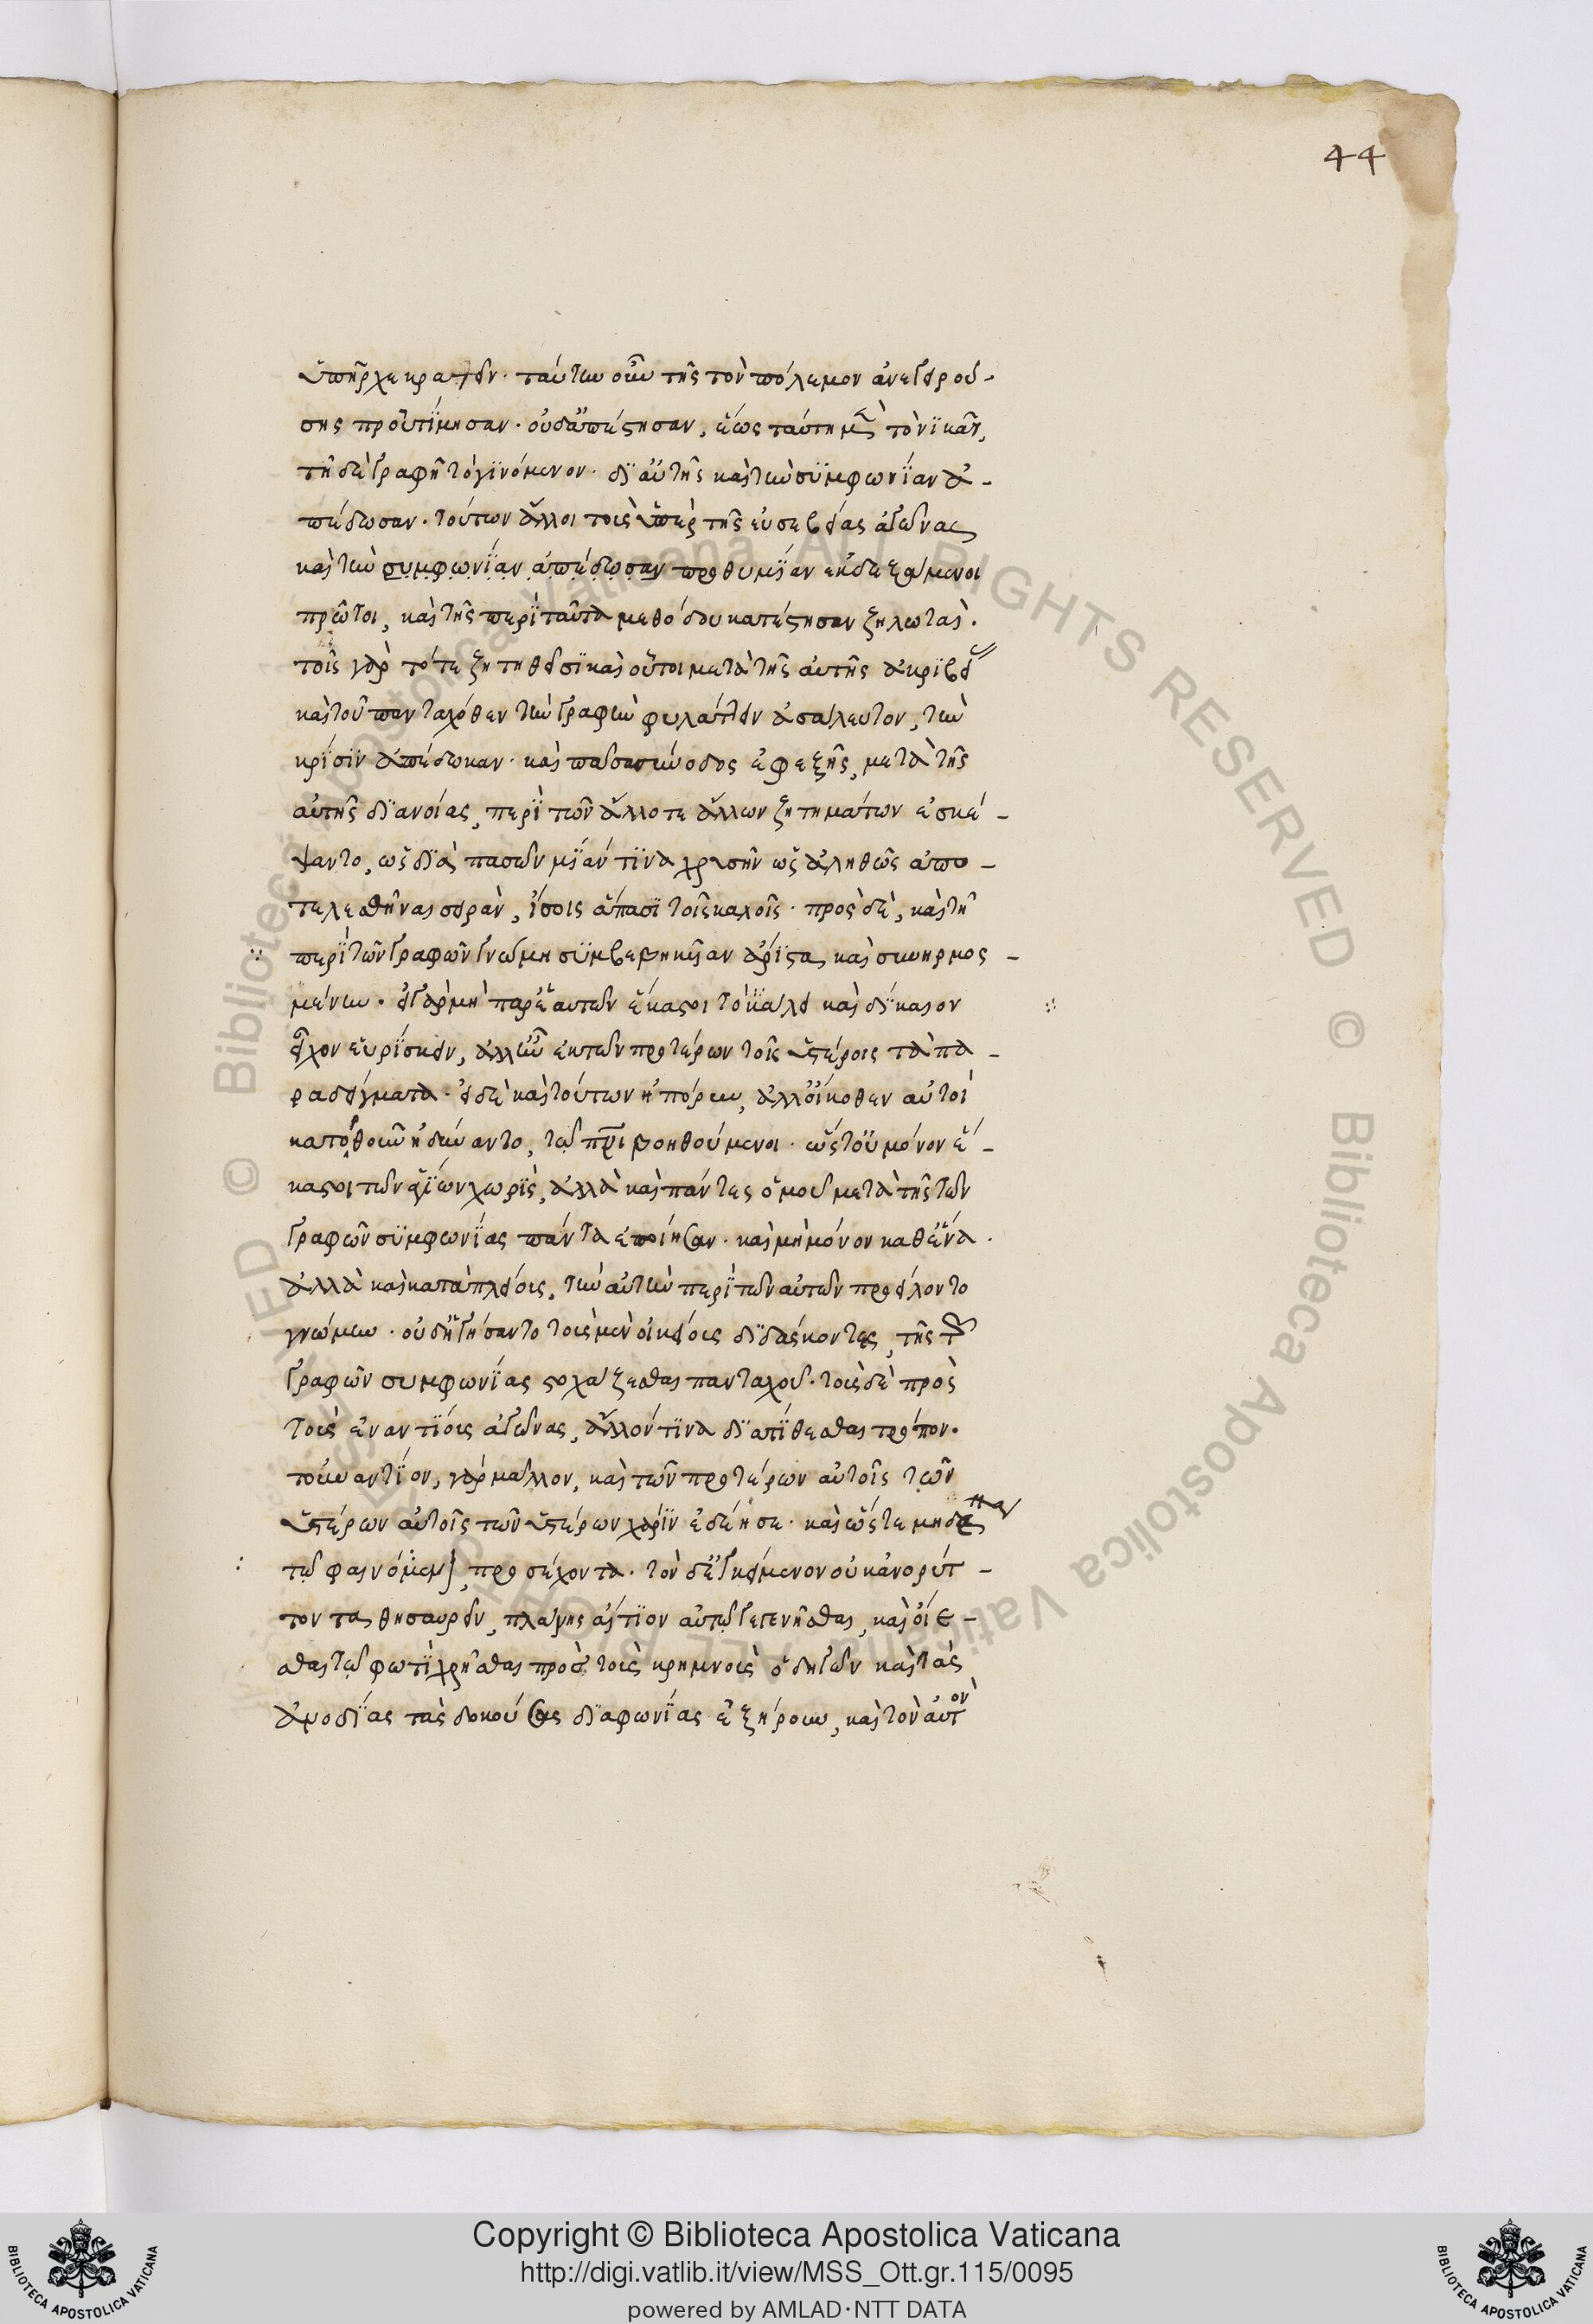 44
ὑπῆρχε κρατεῖν· ταύτην οὖν τῆς τὸν πόλεμον ἀνεγειρού-
σης προὐτίμησαν· οὐδ' ἀπέστησαν, ἕως ταύτη μὲν τὸ νικᾶν,
τῇ δὲ γραφῇ τὸ γινόμενον· δι' αὐτῆς καὶ τὴν συμφωνίαν ἀ-
πέδωσαν· τούτων ἄλλοι τοὺς ὑπὲρ τῆς εὐσεβείας ἀγῶνας
καὶ τὴν συμφωνίαν ἀπέδωσαν προθυμίαν ἐκδεξάμενοι
πρῶτοι, καὶ τῆς περὶ ταῦτα μεθόδου κατέστησαν ζηλωταὶ.
τοῖς γὰρ τότε ζητηθεῖσι καὶ οὗτοι μετὰ τῆς αὐτῆς ἀκριβεί
καὶ τοῦ πανταχόθεν τὴν γραφὴν φυλάττειν ἀσάλευτον, τὴν
κρίσιν ἀπέδωκαν· καὶ πᾶσα σύνοδος ἐφεξῆς, μετὰ τῆς
αὐτῆς διανοίας, περὶ τῶν ἄλλοτε ἄλλων ζητημάτων ἐσκέ-
ψαντο, ὡς διὰ πασῶν μίαν τινὰ χρυσῆν ὡς ἀληθῶς ἀπο-
τελεσθῆναι σειρὰν, ἴσοις ἅπασι τοῖς καλοῖς· πρὸς δὲ, καὶ τῇ
περὶ τῶν γραφῶν γνώμη συμβεβηκυῖαν ἄριστα, καὶ συνηρμος-
μένην· εἰ γὰρ μὴ παρ' ἑαυτῶν ἕκαστοι τὸ κάλει καὶ δίκαιον
εἶχον εὑρίσκειν, ἀλλ' οὖν ἐκ τῶν προτέρων τοῖς ὑστέροις τὰ πα-
ραδείγματα· εἰ δὲ καὶ τούτων ἠπόρουν, ἀλλ' οἴκοθεν αὐτοὶ
κατορθοῦν ἠδύναντο, τῷ πνι βοηθούμενοι· ὥστ' οὐ μόνον ἕ-
καστοι τῶν ἁγίων χωρὶς, ἀλλὰ καὶ πάντες ὁμοῦ μετὰ τῆς τῶν
γραφῶν συμφωνίας πάντα ἐποίησαν· καὶ μὴ μόνον καθ' ἕνα·
ἀλλὰ καὶ κατὰ πλείους, τὴν αὐτὴν περὶ τῶν αὐτῶν προείχοντο
γνώμην· οὐδ' ἡγήσαντο τοὺς μὲν οἰκείους διδάσκοντες, τῆς τῶν
γραφῶν συμφωνίας στοχάζεσθαι πανταχοῦ· τοὺς δὲ πρὸς
τοὺς ἐναντίους ἀγῶνας, ἄλλόν τινα διατίθεσθαι τρόπον·
τοὐναντίον, γὰρ μᾶλλον, καὶ τῶν προτέρων αὐτοῖς τῶν
ὑστέρων αὐτοῖς τῶν ὑστέρων χάριν ἐδέησε· καὶ ὥστε μηδὲ πα
τῷ φαινόμενῳ, προσέχοντα· τὸν δ' ἐγκείμενον οὐκ ἀνορύτ-
τοντα θησαυρὸν, πλάνης αἴτιον αὐτῷ γεγενῆσθαι, καὶ οἴε-
σθαι τῷ φωτὶ χρῆσθαι πρὸς τοὺς κρημνοὺς ὁδηγῶν καὶ τὰς
ἀμοδίας τὰς δοκούσας διαφωνίας ἐξῆρουν, καὶ τὸν αὐτὸν
Copyright © Biblioteca Apostolica Vaticana
http://digi.vatlib.it/view/MSS_Ott.gr.115/0095
powered by AMLAD·NTT DATA